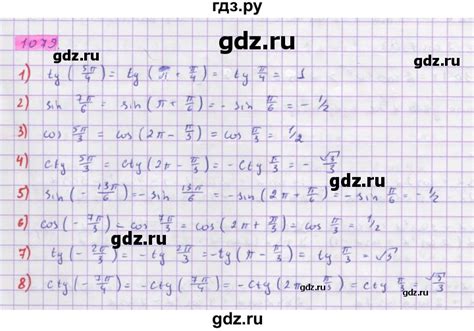 гдз.ру
1079.
gdz.ru
1) tg(5π/4) = tg(π + π/4) = tg π/4 = 1
gdz.ru
2) sin 7π/6 = sin(π + π/6) = - sin π/6 = - 1/2
3) cos 5π/3 = cos(2π - π/3) = cos π/3 = 1/2
gdz.ru
4) ctg 5π/3 = ctg(2π - π/3) = - ctg π/3 = - √3/3
gdz.ru
5) sin(- 13π/6) = - sin(2π + π/6) = - sin π/6 = - 1/2
6) cos(- 7π/3) = cos 7π/3 = cos(2π + π/3) = cos π/3 = 1/2
gdz.ru
7) tg(- 2π/3) = - tg 2π/3 = - tg π/3 = √3
gdz.ru
8) ctg(- 7π/4) = - ctg 7π/4 = - ctg(2π + π/3) = ctg π/3 = √3/3
gdz.ru